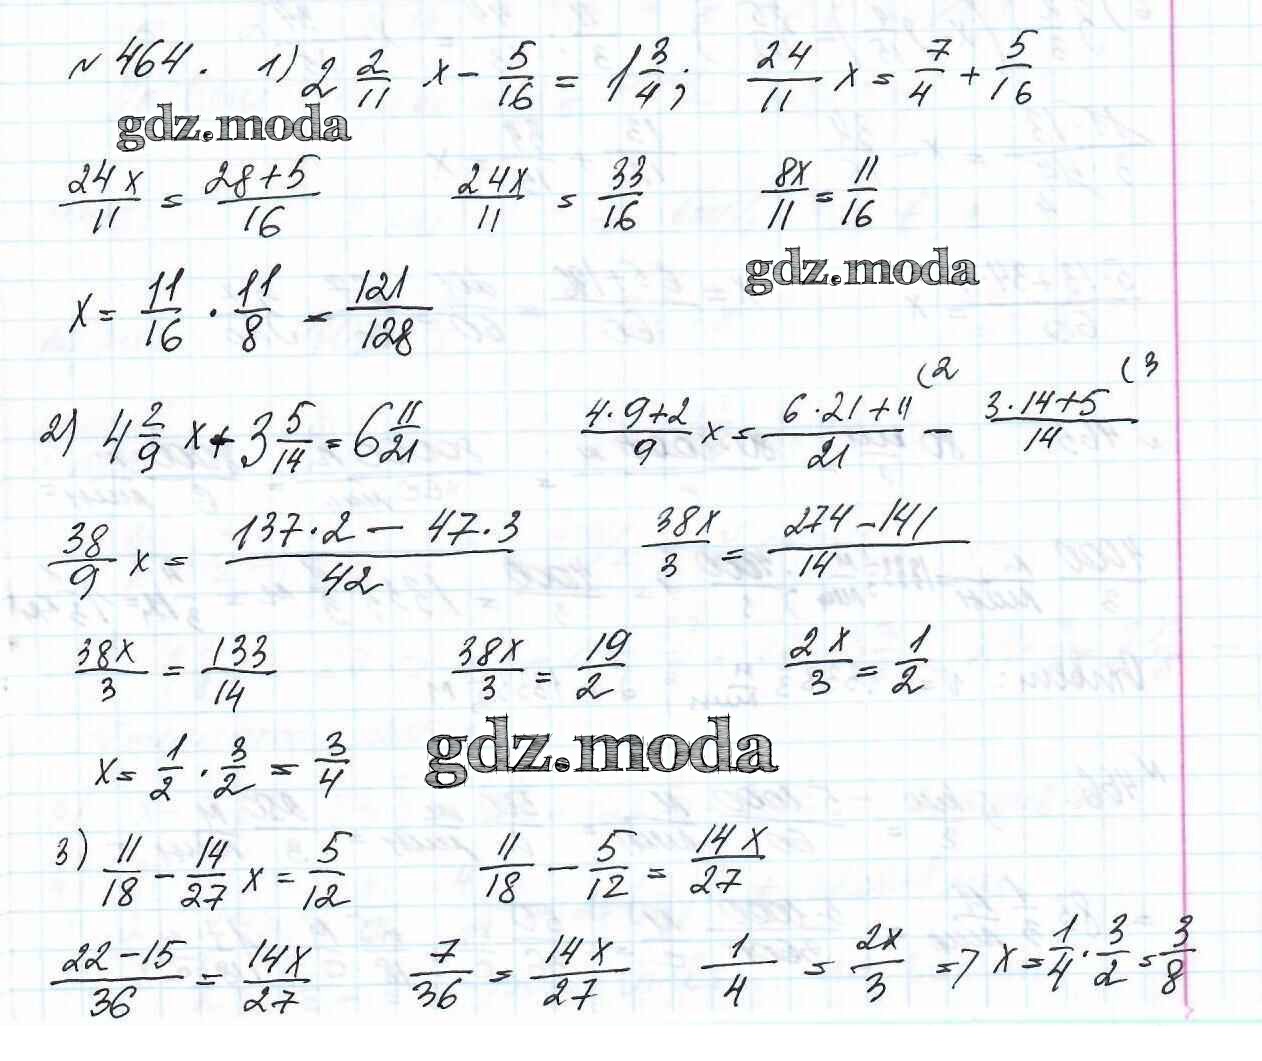 № 464. 1) 2 2/11 x - 5/16 = 1 3/4; 24/11 x = 7/4 + 5/16
gdz.moda
24x/11 = 28+5/16 24x/11 = 33/16 8x/11 = 11/16
gdz.moda
x = 11/16 · 11/8 = 121/128
2) 4 2/9 x + 3 5/14 = 6 11/21 4·9+2/9 x = 6·21+11/21 (2 - 3·14+5/14 (3
38/9 x = 137·2 - 47·3/42 38x/3 = 274-141/14
38x/3 = 133/14 38x/3 = 19/2 2x/3 = 1/2
x = 1/2 · 3/2 = 3/4
gdz.moda
3) 11/18 - 14/27 x = 5/12 11/18 - 5/12 = 14x/27
22-15/36 = 14x/27 7/36 = 14x/27 1/4 = 2x/3 => x = 1/4 · 3/2 = 3/8